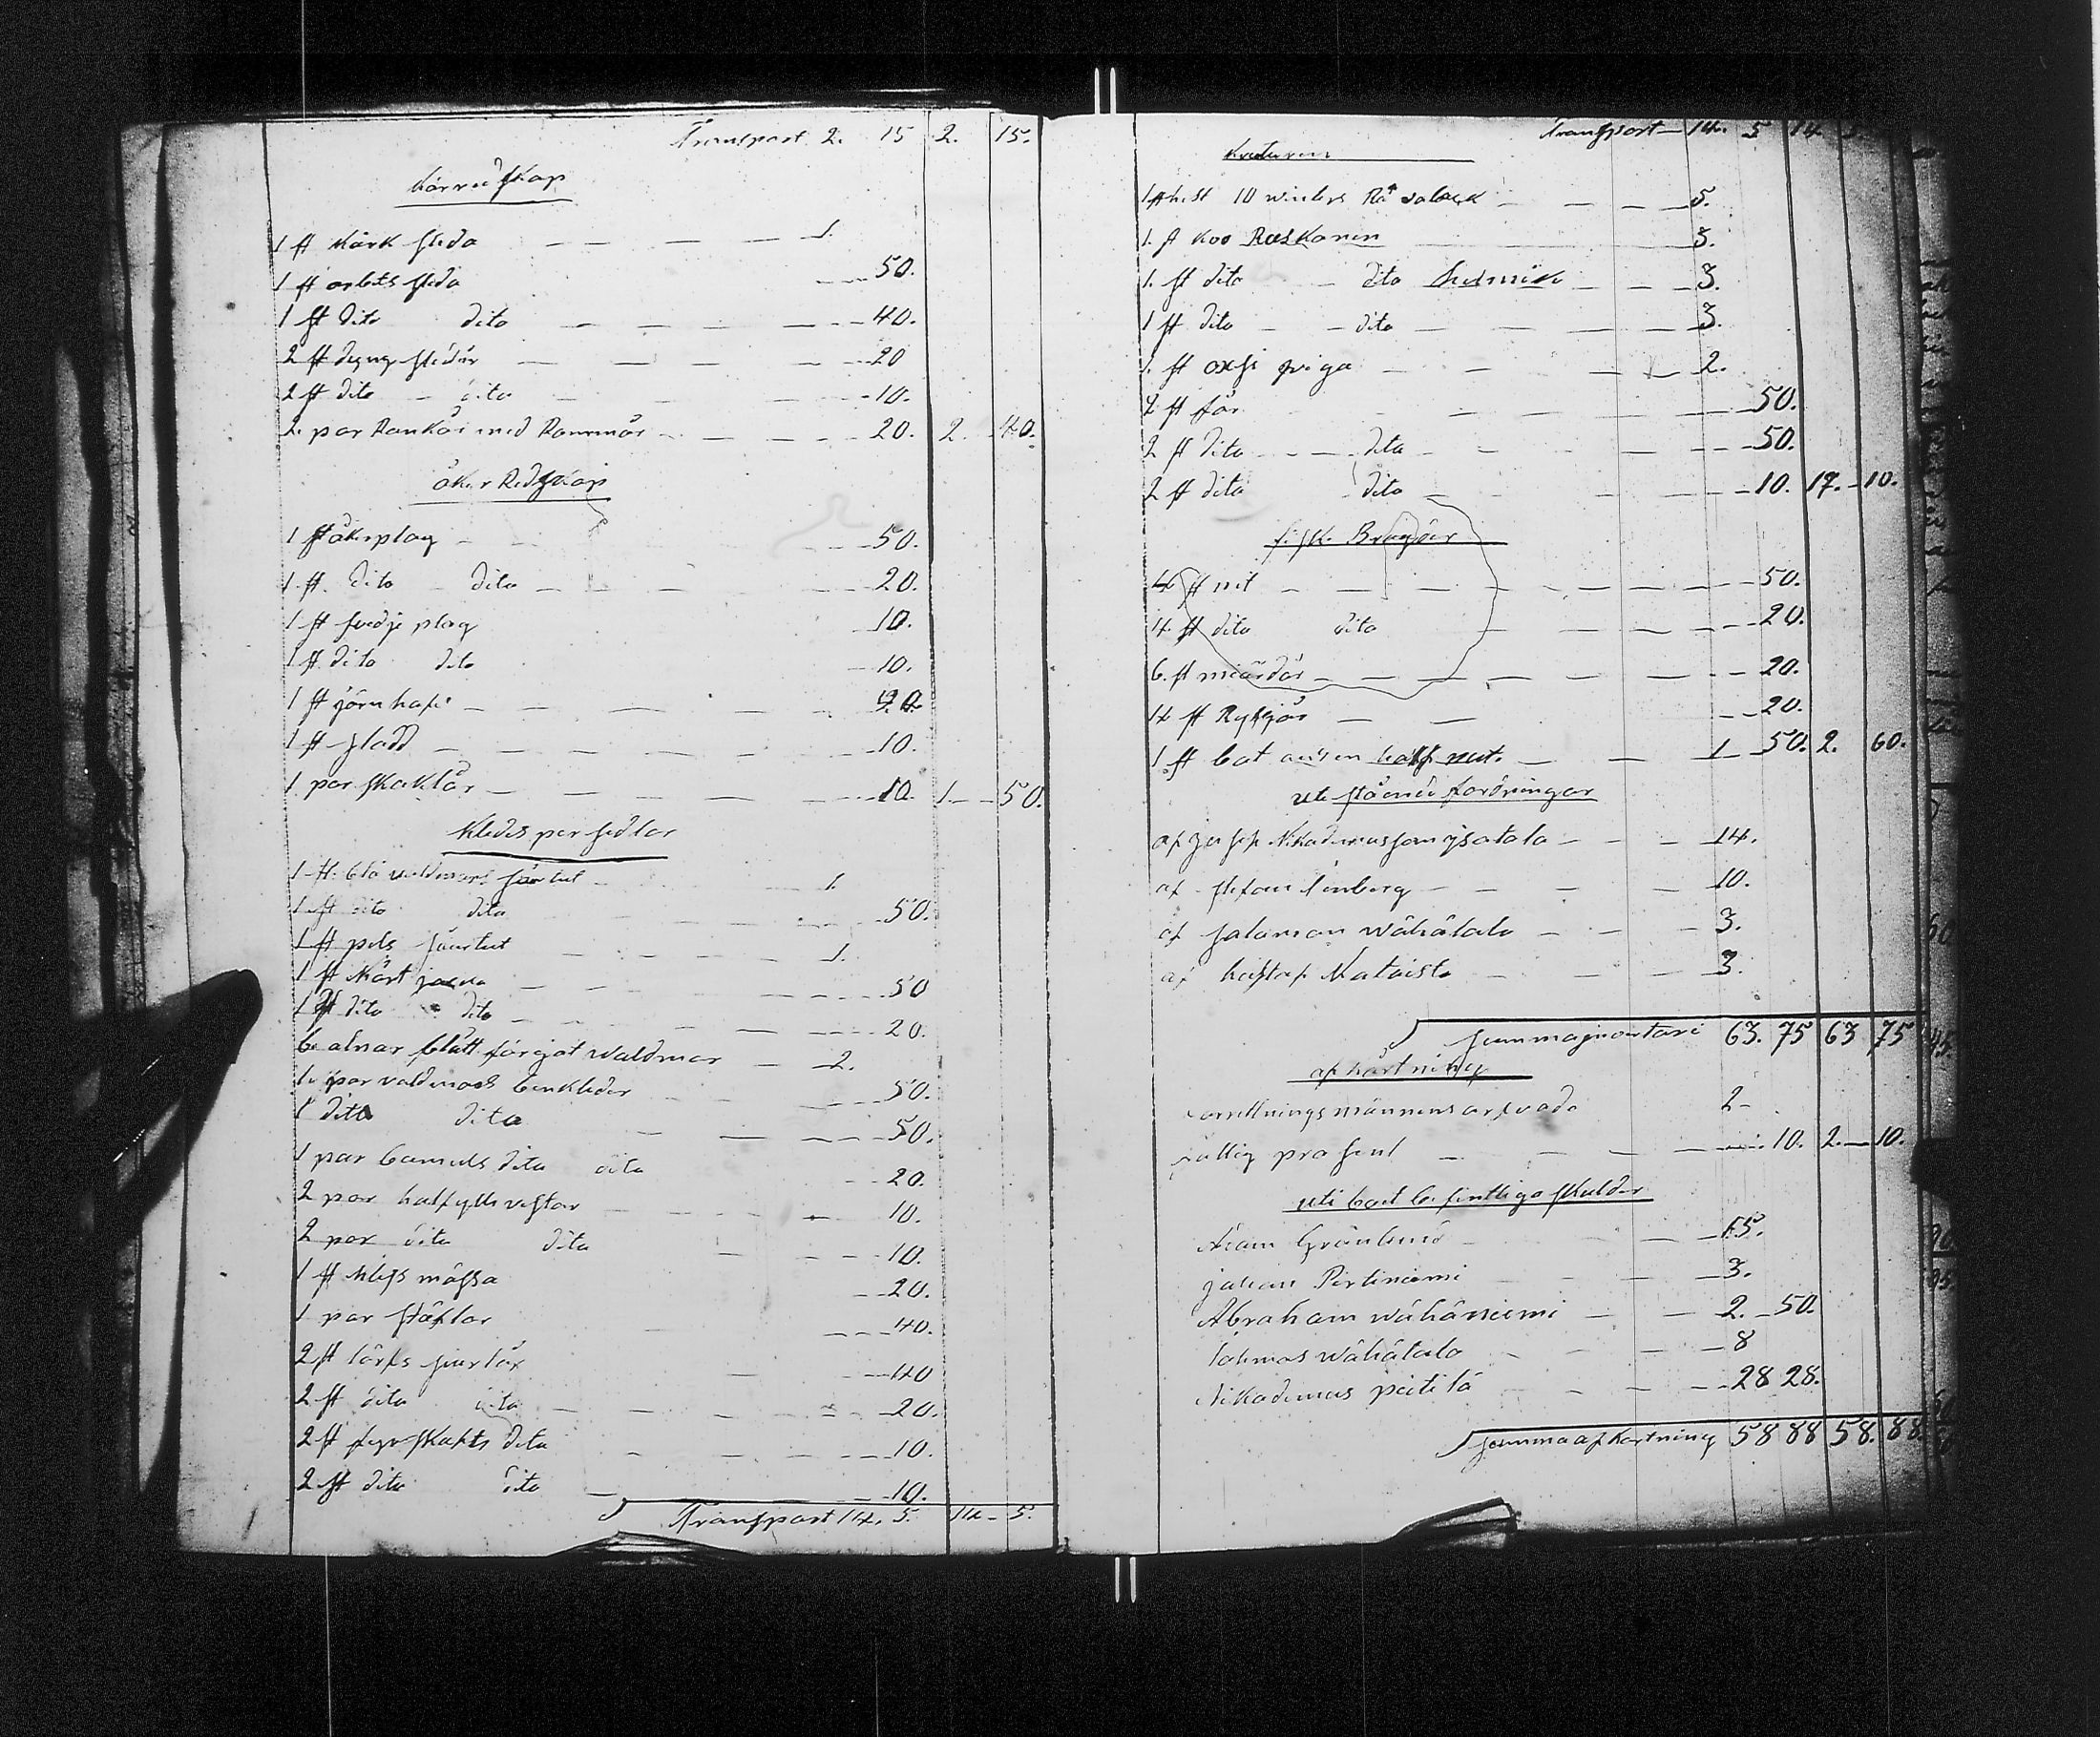 Transport 2. 15 2. 15.
Körredskap
1 st kärk släda — — — — 1.
1 st arbets släda — 50.
1 st dito dito — — — — 40.
2 st dyng slädär — — — — 20
2 st dito dito — — — 10.
2. par Rankår med Rammär — — — 20. 2. 40.
åker Redskap
1 st åkerplog — — 50.
1. st. dito dito — — 20.
1 st svedje plog 10.
1 st. dito dito 10.
1 st järn hafv — — — — 20
1 st sladd — — — — 10.
1. par skaklår — — — — 10. 1. 50.
Kledes per sedlar
1 st. blå valdmars surtut 1.
1 st dito dito 50.
1 st pels surtut 1.
1 st kort jacka — — — 50
1 st dito dito — — — 20.
6. alnar blått färgat waldmar — 2.
1. par valdmars benkleder 50.
1 dito dito — — — 50.
1 par bamuls dito dito 20.
2 par halfylle vestar — — — 10.
2 par dito dito — — 10.
1 st mössa 20.
1 par stöflar — — 40.
2 st lärfs — 40
2 st dito dito — — — 20.
2 st fyrskafts dito — — 10.
2 st dito dito — 10.
Transport 14. 5. 14 - 5.
Transport — 14. 5 14. 5.
Kreaturen
1 st hest 10 winters valack — — — 5.
1. st koo Raskanen 3.
1. st dito dito — — — 3.
1 st dito — dito — — — 3.
1. st oxe qviga — — — 2.
2 st får — — 50.
2 st dito — dito — — — 50.
2 st dito dito — — — 10. 17. 10.
fisk Bragder
4 st nät — — — — — 50.
4. st dito dito — — — 20.
6. st miärdär — — — — — 20.
4 st Rysjör — — — 20.
1. st bat half nut. — — 1. 50. 2. 60.
ute stående fordringar
af Josep Nikademusson — — — 14.
af stefan — — — 10.
af Salamon Wähätalo — — — 3.
af Mataisto — — — 3.
Summa jnventari 63. 75 63 75
afkårtning
orrettningsmännens arfvode 2 -
fattig prosent — — — 10. 2. 10.
uti boet befintliga skulder
Adam Grönlund — — 15.
johan Pirtiniemi — — 3.
Abraham wähäniemi — — 2. 50.
Tahmas Wähätalo — — 8
Nikademus — — 28 28.
Summa afkortning 58 88 58. 88.